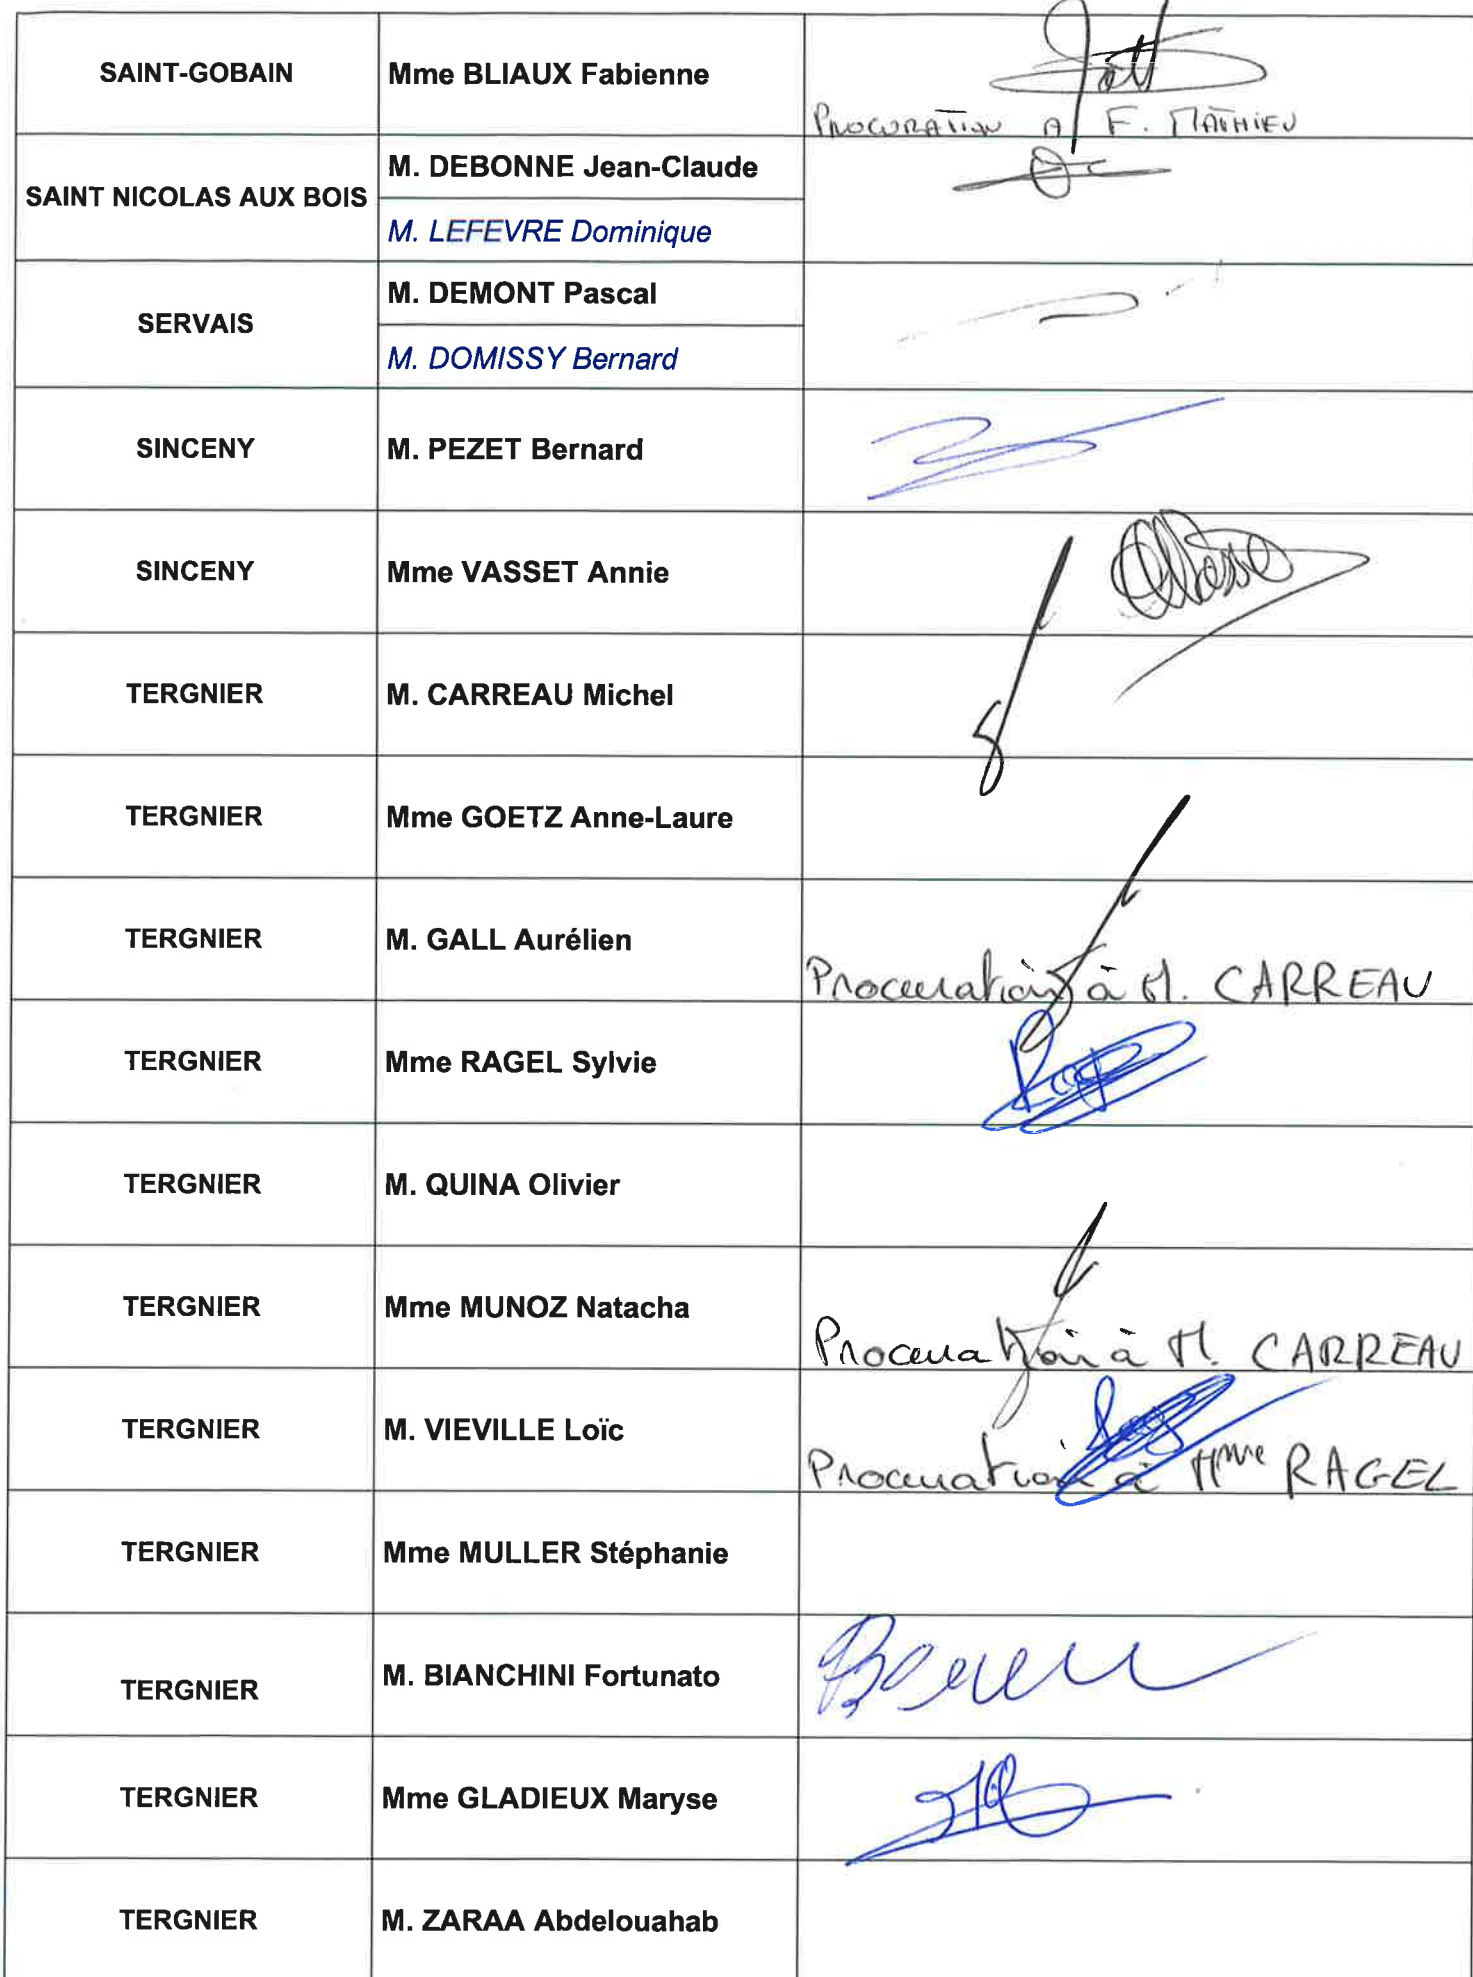 SAINT-GOBAIN
Mme BLIAUX Fabienne
PROCURATION A F. MATHIEU
SAINT NICOLAS AUX BOIS
M. DEBONNE Jean-Claude
M. LEFEVRE Dominique
SERVAIS
M. DEMONT Pascal
M. DOMISSY Bernard
SINCENY
M. PEZET Bernard
SINCENY
Mme VASSET Annie
TERGNIER
M. CARREAU Michel
TERGNIER
Mme GOETZ Anne-Laure
TERGNIER
M. GALL Aurélien
Procuration à M. CARREAU
TERGNIER
Mme RAGEL Sylvie
TERGNIER
M. QUINA Olivier
TERGNIER
Mme MUNOZ Natacha
Procuration à M. CARREAU
TERGNIER
M. VIEVILLE Loïc
Procuration à Mme RAGEL
TERGNIER
Mme MULLER Stéphanie
TERGNIER
M. BIANCHINI Fortunato
TERGNIER
Mme GLADIEUX Maryse
TERGNIER
M. ZARAA Abdelouahab